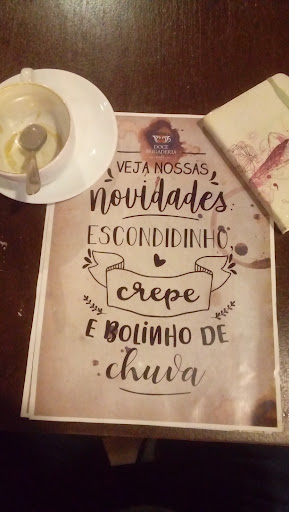 DOCE
BRIGADERIA
VEJA NOSSAS
novidades:
ESCONDIDINHO,
crepe
E BOLINHO DE
chuva